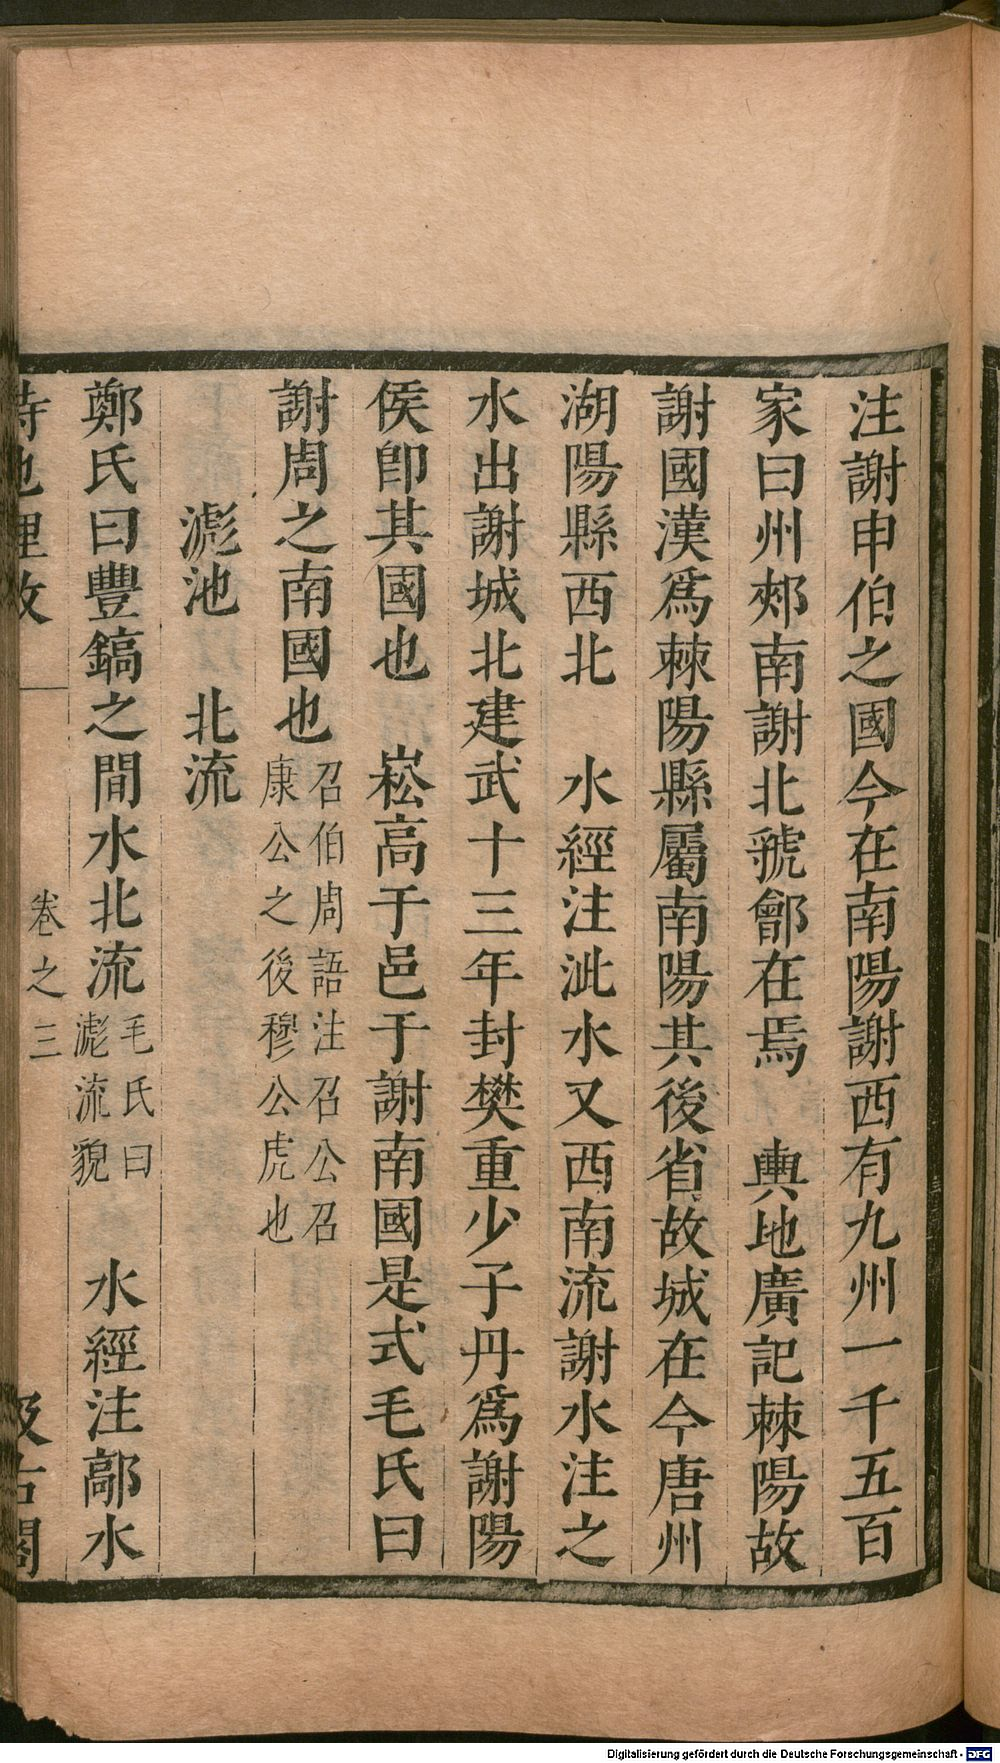 注謝申伯之國今在南陽謝西有九州一千五百
家曰州郟南謝北虢鄶在焉　輿地廣記棘陽故
謝國漢爲棘陽縣屬南陽其後省故城在今唐州
湖陽縣西北　水經注泚水又西南流謝水注之
水出謝城北建武十三年封樊重少子丹爲謝陽
侯卽其國也　崧高于邑于謝南國是式毛氏曰
謝周之南國也
召伯周語注召公召
康公之後穆公虎也
滮池　北流
鄭氏曰豐鎬之間水北流
毛氏曰
滮流貌
水經注鄗水
詩地理攷
卷之三
汲古閣
Digitalisierung gefördert durch die Deutsche Forschungsgemeinschaft - DFG